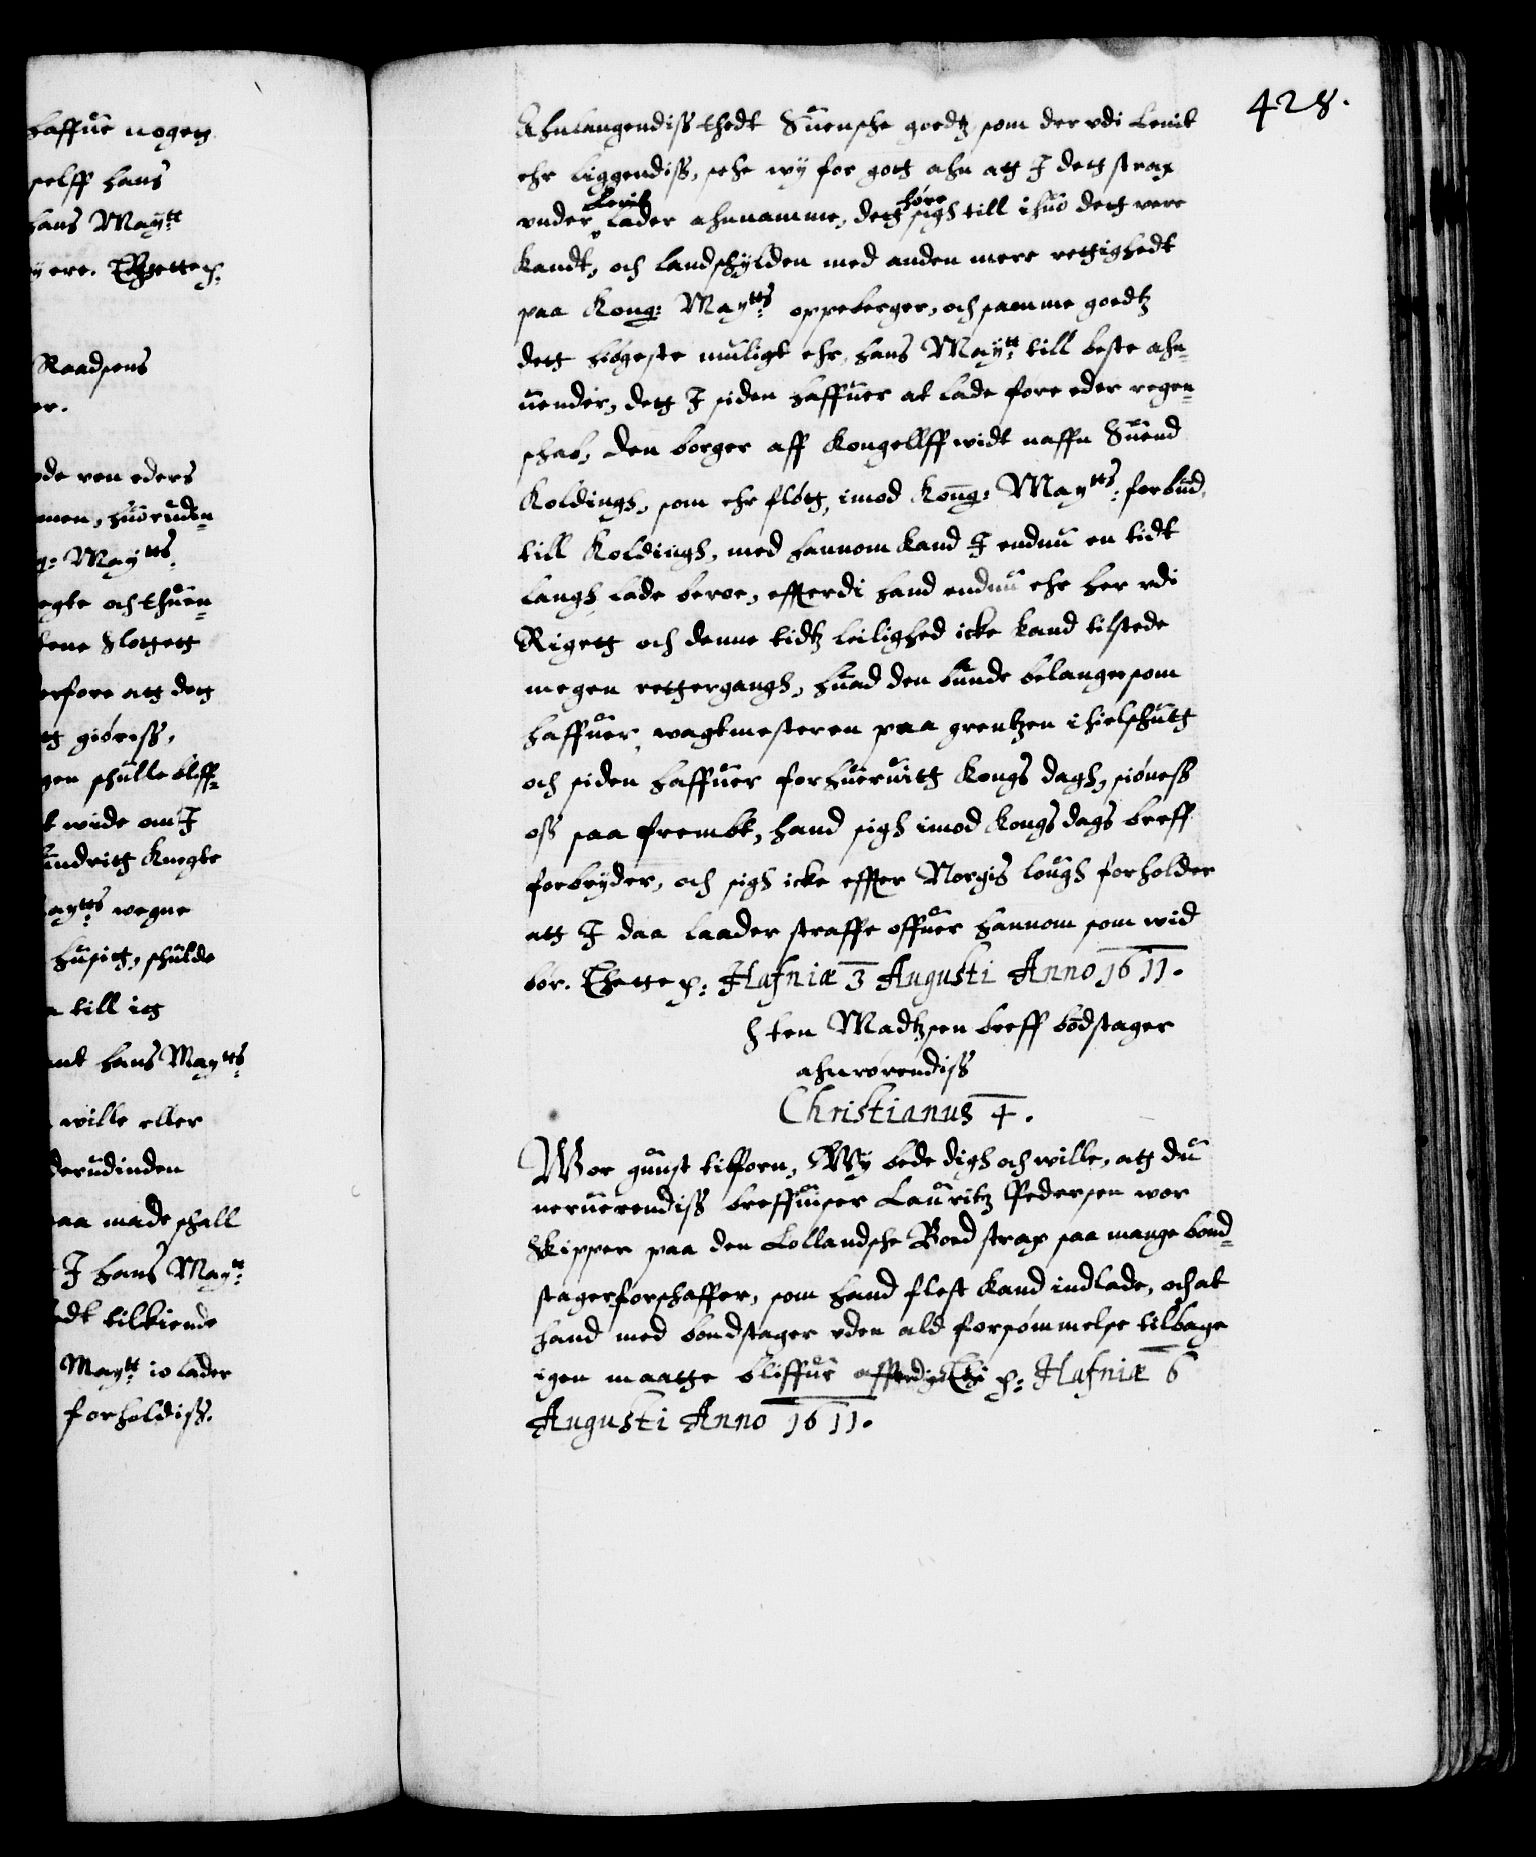 haffue nogen
selff hans
hans Maytt
y ere. Thette p:
Raadsens
er.
ode ven eders
men, huorudin-
g: Maytts
egte och thuen-
tene Slottett
erfore att dett
tt giöriss,
gen schulle bliff-
t wide om J
undritt Knegte
aytts wegne
husitt, schulde
n till itt
ant hans Maytts
wille eller
derudinden
aa made schall
J hans Maytt
edt tilkiende
Maytt io lader
forholdiss.
428.
Ahnlangendiss thedt Suensche goedtz som der vdi Lenit
ehr liggendiss, sehe wy for gott ahn att J dett strax
vnder Lenit lader ahnnamme, dett höre sigh till i huo dett vere
kandt, och landschylden med anden mere rettighedt
paa Kong: Maytts oppeberger, och samme goedtz
dett höigeste muligt ehr, hans Maytt till beste ahn-
uender, dett J siden haffuer at lade före eder regen-
schab, den borger aff Kongellff widt naffn Suend
Koldingh, som ehr flött, imod Kong: Maytts: forbud,
till Koldingh, med hannom kand J endnu en tidt
langh lade beroe, effterdi hand endnu ehr her vdi
Rigett och denne tidtz leilighed icke kand tilstede
megen rettergangh, huad den bunde belanger som
haffuer wagtmesteren paa grentzen ihielschutt
och siden haffuer forhueruitt Kongs dagh, siöness
oss saa frembt, hand sigh imod Kongs dags breff
forbryder, och sigh icke effter Norgis lough forholder
att J daa laader straffe offuer hannom som wid
bör. Thette p: Hafniæ 3 Augusti Anno 1611.
Sten Madtzsen breff bodstager
ahnrörendiss
Christianus 4.
Wor gunst tilforn, Wy bede digh och wille, att du
neruerendiss breffuiser Lauritz Pedersen wor
Skipper paa den Lollandsche Boed strax saa mange bond-
stager forschaffer, som hand flest kand indlade, och at
hand med bondstager vden ald forsömmelse tilbage
igen maatte bliffue afferdigett p: Hafniæ 6
Augusti Anno 1611.